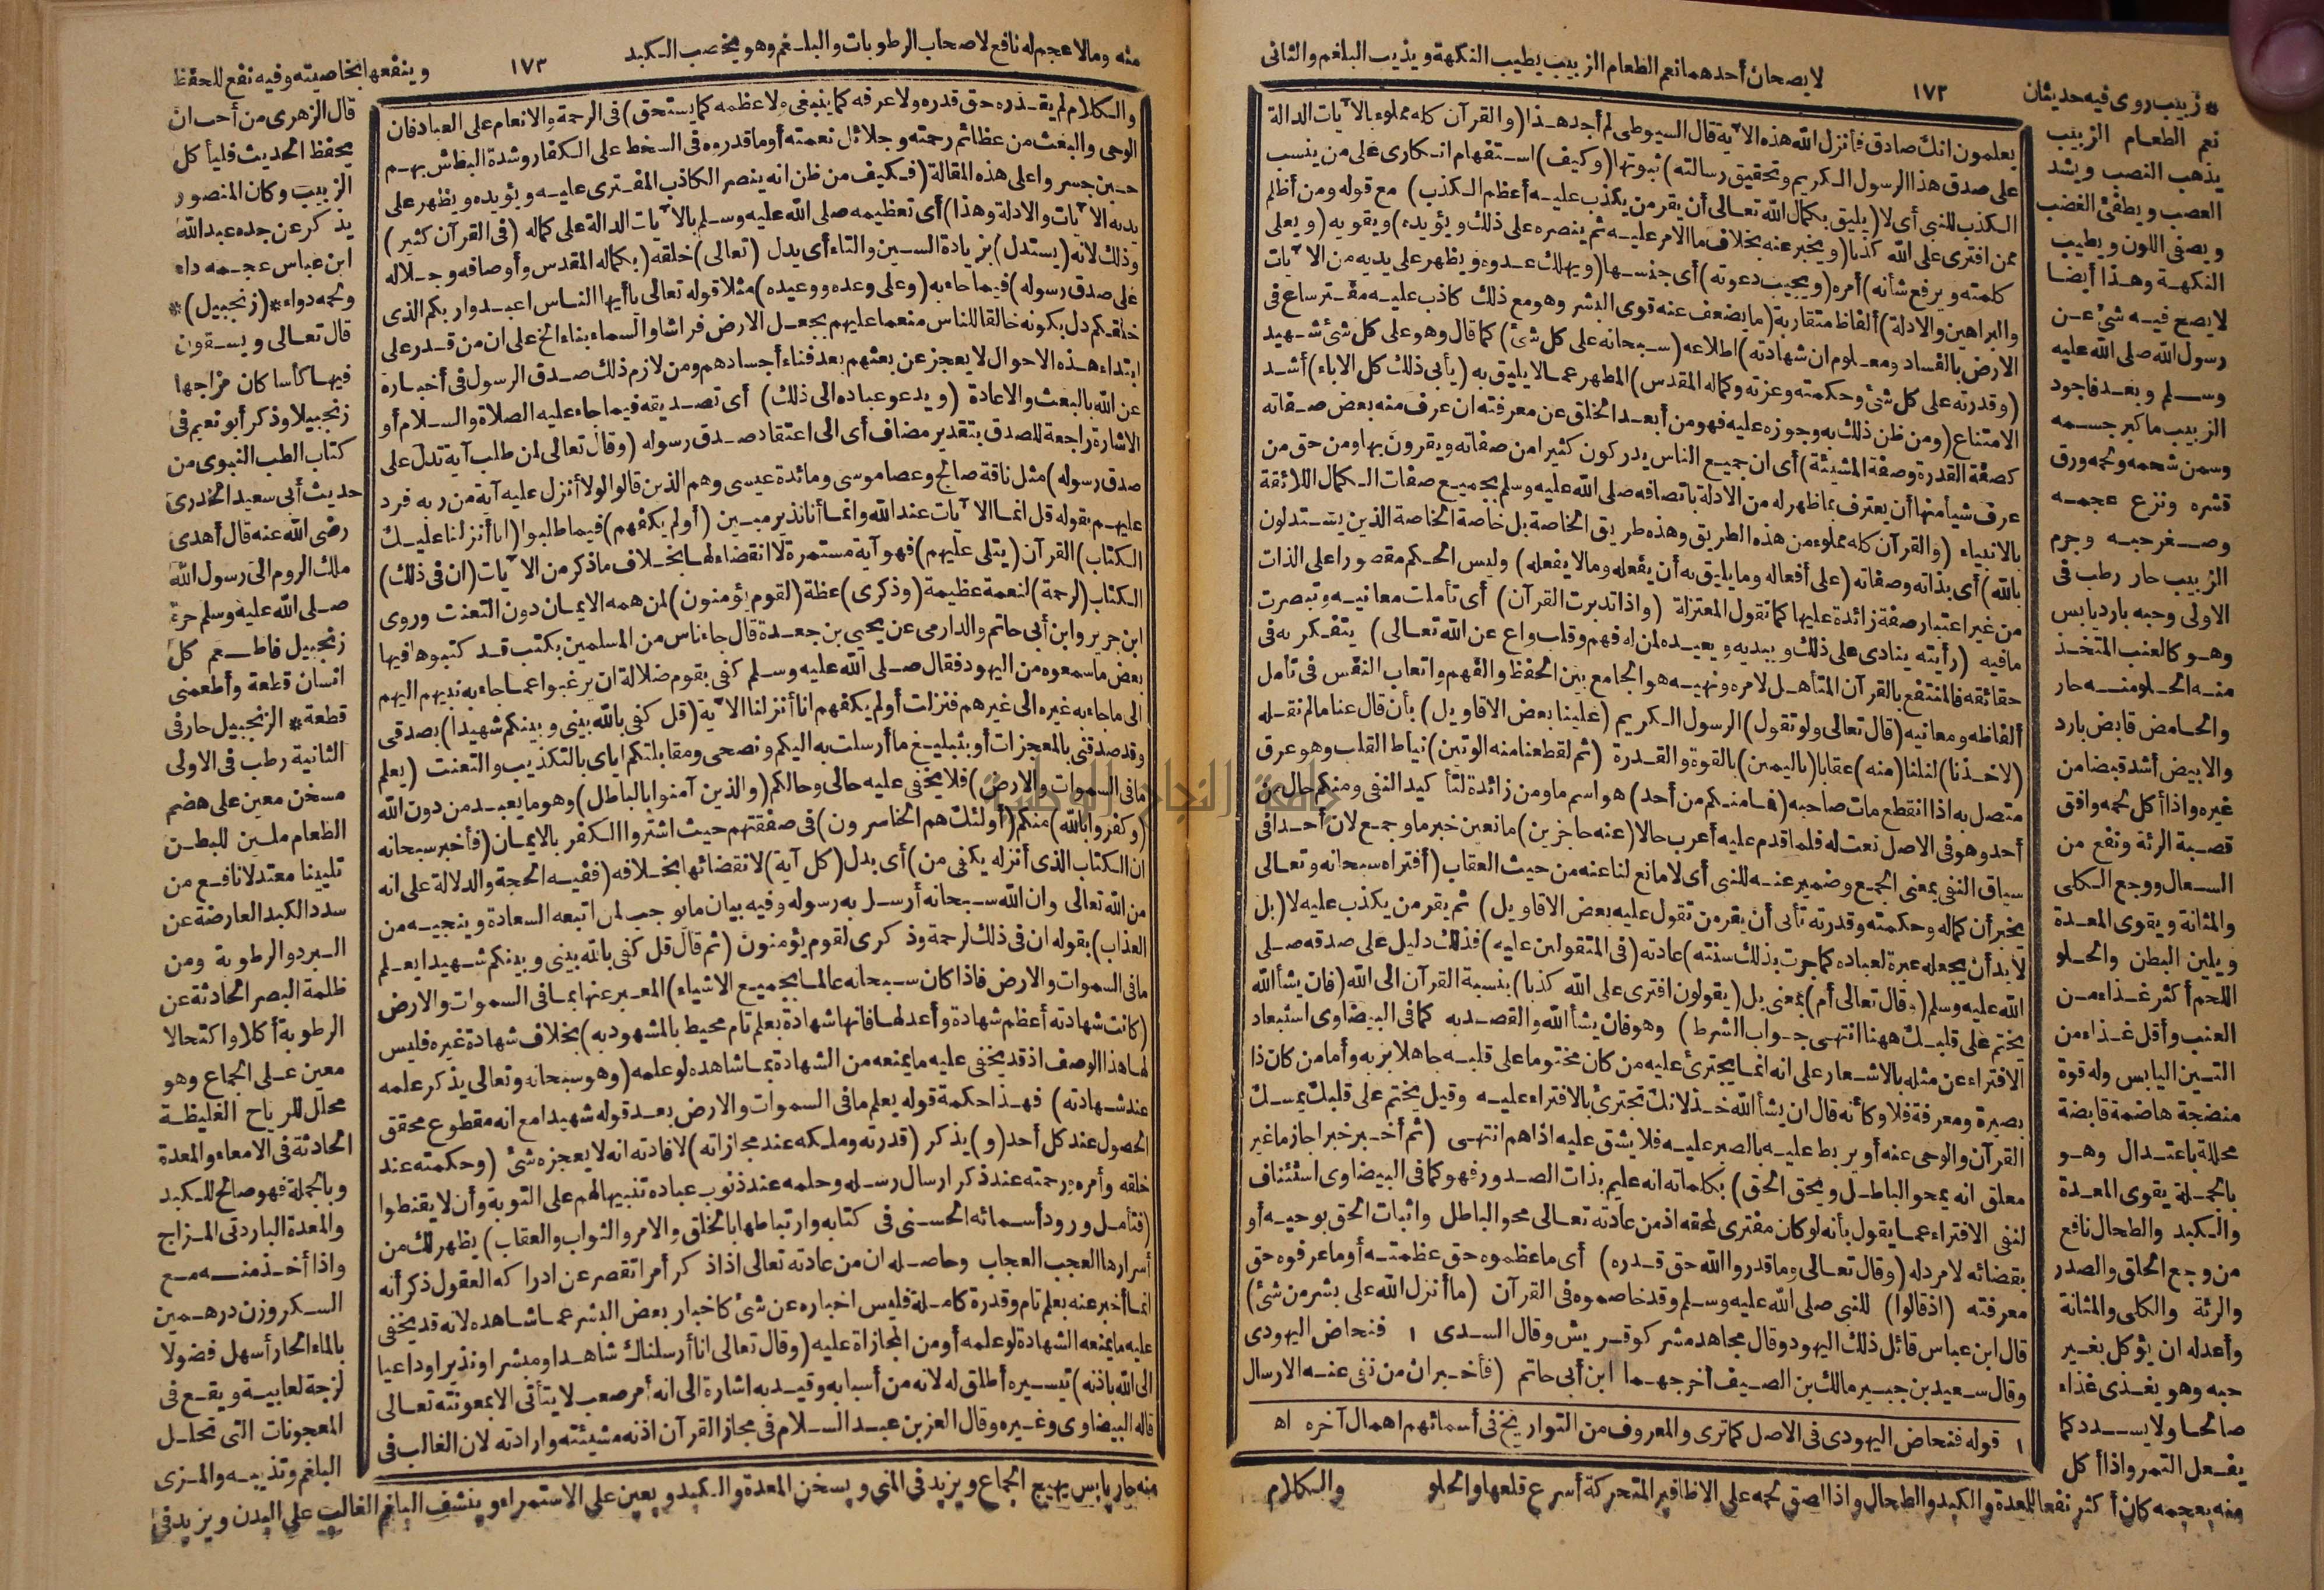 لا يصحان أحدهما نعم الطعام الزبيب يطيب النكهة ويذيب البلغم والثاني
١٧٢
* زبيب روى فيه حديثان
نعم الطعام الزبيب
يذهب النصب ويشد
العصب ويطفئ الغضب
ويصفى اللون ويطيب
النكهة وهذا أيضا
لا يصح فيه شئ عن
رسول الله صلى الله عليه
وسلم وبعد فاجود
الزبيب ما كبر جسمه
وسمن شحمه ولحمه ورق
قشره ونزع عجمه
وصغر حبه وجرم
الزبيب حار رطب فى
الاولى وحبه بارد يابس
وهو كالعنب المتخذ
منه الحلو منه حار
والحامض قابض بارد
والابيض أشد قبضا من
غيره واذا أكل لحمه وافق
قصبة الرئة ونفع من
السعال ووجع الكلى
والمثانة ويقوى المعدة
ويلين البطن والحلو
اللحم أكثر غذاء من
العنب وأقل غذاء من
التين اليابس وله قوة
منضجة هاضمة قابضة
محللة باعتدال وهو
بالجملة يقوى المعدة
والكبد والطحال نافع
من وجع الحلق والصدر
والرئة والكلى والمثانة
وأعدله ان يؤكل بغير
حبه وهو يغذى غذاء
صالحا ولا يسدد كما
يفعل التمر واذا أكل
منه بعجمه كان أكثر نفعا للمعدة والكبد والطحال واذا الصق لحمه على الاظافير المتحركة أسرع قلعها والحلو
يعلمون انك صادق فأنزل الله هذه الآية قال السيوطى لم أجد هذا (والقرآن كله مملوء بالآيات الدالة
على صدق هذا الرسول الكريم وتحقيق رسالته) ثبوتها (وكيف) استفهام انكارى على من ينسب
الكذب للنبي أى لا (يليق بكمال الله تعالى أن يقر من يكذب عليه أعظم الكذب) مع قوله ومن أظلم
ممن افترى على الله كذبا (ويخبر عنه بخلاف ما الامر عليه ثم ينصره على ذلك ويؤيده) ويقويه (ويعلى
كلمته ويرفع شأنه) أمره (ويجيب دعوته) أى جنسها (ويهلك عدوه ويظهر على يديه من الآيات
والبراهين والادلة) ألفاظ متقاربة (ما يضعف عنه قوى البشر وهو مع ذلك كاذب عليه مفتر ساع فى
الارض بالفساد ومعلوم ان شهادته) اطلاعه (سبحانه على كل شئ) كما قال وهو على كل شئ شهيد
(وقدرته على كل شئ وحكمته وعزته وكماله المقدس) المطهر عما لا يليق به (يأبى ذلك كل الاباء) أشد
الامتناع (ومن ظن ذلك به وجوزه عليه فهو من أبعد الخلق عن معرفته ان عرف منه بعض صفاته
كصفة القدرة وصفة المشيئة) أى ان جميع الناس يدركون كثيرا من صفاته ويقرون بها ومن حق من
عرف شيأ منها أن يعترف بما ظهر له من الادلة باتصافه صلى الله عليه وسلم بجميع صفات الكمال اللائقة
بالانبياء (والقرآن كله مملوء من هذه الطريق وهذه طريق الخاصة بل خاصة الخاصة الذين يستدلون
بالله) أى بذاته وصفاته (على أفعاله وما يليق به أن يفعله وما لا يفعله) وليس الحكم مقصورا على الذات
من غير اعتبار صفة زائدة عليها كما تقول المعتزلة (واذا تدبرت القرآن) أى تأملت معانيه وتبصرت
ما فيه (رأيته ينادى على ذلك ويبديه ويعيده لمن له فهم وقلب واع عن الله تعالى) يتفكر به فى
حقائقه فالمنتفع بالقرآن المتأهل لامره ونهيه هو الجامع بين الحفظ والفهم واتعاب النفس فى تأمل
ألفاظه ومعانيه (قال تعالى ولو تقول) الرسول الكريم (علينا بعض الاقاويل) بأن قال عنا ما لم نقله
(لاخذنا) لنلنا (منه) عقابا (باليمين) بالقوة والقدرة (ثم لقطعنا منه الوتين) نياط القلب وهو عرق
متصل به اذا انقطع مات صاحبه (فما منكم من أحد) هو اسم ما ومن زائدة لتأكيد النفى ومنكم حال من
أحد وهو فى الاصل نعت له فلما قدم عليه أعرب حالا (عنه حاجزين) مانعين خبر ما وجمع لان أحدا فى
سياق النفى بمعنى الجمع وضمير عنه للنبى أى لا مانع لنا عنه من حيث العقاب (أفتراه سبحانه وتعالى
يخبر أن كماله وحكمته وقدرته تأبى أن يقر من تقول عليه بعض الاقاويل) ثم يقر من يكذب عليه لا (بل
لا بد أن يجعله عبرة لعباده كما جرت بذلك سنته) عادته (فى المتقولين عليه) فذلك دليل على صدقه صلى
الله عليه وسلم (وقال تعالى أم) بمعنى بل (يقولون افترى على الله كذبا) بنسبة القرآن الى الله (فان يشأ الله
يختم على قلبك ههنا انتهى جواب الشرط) وهو فان يشأ الله والقصد به كما فى البيضاوى استبعاد
الافتراء عن مثله بالاشعار على انه انما يجترئ عليه من كان مختوما على قلبه جاهلا بربه وأما من كان ذا
بصيرة ومعرفة فلا وكأنه قال ان يشأ الله خذلانك تجترئ بالافتراء عليه وقيل يختم على قلبك يمسك
القرآن والوحى عنه أو يربط عليه بالصبر عليه فلا يشق عليه اذاهم انتهى (ثم أخبر خبرا جازما غير
معلق انه يمحو الباطل ويحق الحق) بكلماته انه عليم بذات الصدور فهو كما فى البيضاوى استئناف
لنفى الافتراء عما يقول بأنه لو كان مفترى لمحقه اذ من عادته تعالى محو الباطل واثبات الحق بوحيه أو
بقضائه لا مرد له (وقال تعالى وما قدروا الله حق قدره) أى ما عظموه حق عظمته أو ما عرفوه حق
معرفته (اذ قالوا) للنبى صلى الله عليه وسلم وقد خاصموه فى القرآن (ما أنزل الله على بشر من شئ)
قال ابن عباس قائل ذلك اليهود وقال مجاهد مشركو قريش وقال السدى ١ فنحاض اليهودى
وقال سعيد بن جبير مالك بن الصيف أخرجهما ابن أبى حاتم (فأخبر ان من نفى عنه الارسال
١ قوله فنحاض اليهودى فى الاصل كما ترى والمعروف من التواريخ فى أسمائهم اهمال آخره اه
والكلام
منه وما لا عجم له نافع لاصحاب الرطوبات والبلغم وهو يخصب الكبد
١٧٣
وينفعها بخاصيته وفيه نفع للحفظ
والكلام لم يقدره حق قدره ولا عرفه كما ينبغى ولا عظمه كما يستحق) فى الرحمة والانعام على العباد فان
الوحى والبعث من عظائم رحمته وجلائل نعمته أو ما قدروه فى السخط على الكفار وشدة البطش بهم
حين جسروا على هذه المقالة (فكيف من ظن انه ينصر الكاذب المفترى عليه ويؤيده ويظهر على
يديه الآيات والادلة وهذا) أى تعظيمه صلى الله عليه وسلم بالآيات الدالة على كماله (فى القرآن كثير)
وذلك لانه (يستدل) بزيادة السين والتاء أى يدل (تعالى) خلقه (بكماله المقدس وأوصافه وجلاله
على صدق رسوله) فيما جاء به (وعلى وعده ووعيده) مثلا قوله تعالى يا أيها الناس اعبدوا ربكم الذى
خلقكم دل بكونه خالقا للناس منعما عليهم بجعل الارض فراشا والسماء بناء الخ على ان من قدر على
ابتداء هذه الاحوال لا يعجز عن بعثهم بعد فناء أجسادهم ومن لازم ذلك صدق الرسول فى أخباره
عن الله بالبعث والاعادة (ويدعو عباده الى ذلك) أى تصديقه فيما جاء عليه الصلاة والسلام أو
الاشارة راجعة للصدق بتقدير مضاف أى الى اعتقاد صدق رسوله (وقال تعالى لمن طلب آية تدل على
صدق رسوله) مثل ناقة صالح وعصا موسى ومائدة عيسى وهم الذين قالوا لولا أنزل عليه آية من ربه فرد
عليهم بقوله قل انما الآيات عند الله وانما أنا نذير مبين (أولم يكفهم) فيما طلبوا (انا أنزلنا عليك
الكتاب) القرآن (يتلى عليهم) فهو آية مستمرة لا انقضاء لها بخلاف ما ذكر من الآيات (ان فى ذلك)
الكتاب (لرحمة) لنعمة عظيمة (وذكرى) عظة (لقوم يؤمنون) لمن همه الايمان دون التعنت وروى
ابن جرير وابن أبى حاتم والدارمى عن يحيى بن جعدة قال جاء ناس من المسلمين بكتب قد كتبوها فيها
بعض ما سمعوه من اليهود فقال صلى الله عليه وسلم كفى بقوم ضلالة ان يرغبوا عما جاء به نبيهم اليهم
الى ما جاء به غيره الى غيرهم فنزلت أولم يكفهم انا أنزلنا الآية (قل كفى بالله بينى وبينكم شهيدا) بصدقى
وقد صدقنى بالمعجزات أو بتبليغ ما أرسلت به اليكم ونصحى ومقابلتكم اياى بالتكذيب والتعنت (يعلم
ما فى السموات والارض) فلا يخفى عليه حالى وحالكم (والذين آمنوا بالباطل) وهو ما يعبد من دون الله
(وكفروا بالله) منكم (أولئك هم الخاسرون) فى صفقتهم حيث اشتروا الكفر بالايمان (فأخبر سبحانه
ان الكتاب الذى أنزله يكفى من) أى بدل (كل آية) لانقضائها بخلافه (ففيه الحجة والدلالة على انه
من الله تعالى وان الله سبحانه أرسل به رسوله وفيه بيان ما يوجب لمن اتبعه السعادة وينجيه من
العذاب) بقوله ان فى ذلك لرحمة وذكرى لقوم يؤمنون (ثم قال قل كفى بالله بينى وبينكم شهيدا يعلم
ما فى السموات والارض فاذا كان سبحانه عالما بجميع الاشياء) المعبر عنها بما فى السموات والارض
(كانت شهادته أعظم شهادة وأعدلها فانها شهادة بعلم تام محيط بالمشهود به) بخلاف شهادة غيره فليس
لها هذا الوصف اذ قد يخفى عليه ما يمنعه من الشهادة بما شاهده لو علمه (وهو سبحانه وتعالى يذكر علمه
عند شهادته) فهذا حكمة قوله يعلم ما فى السموات والارض بعد قوله شهيدا مع انه مقطوع محقق
الحصول عند كل أحد (و) يذكر (قدرته وملكه عند مجازاته) لافادته انه لا يعجزه شئ (وحكمته عند
خلقه وأمره ورحمته عند ذكر ارسال رسله وحلمه عند ذنوب عباده تنبيها لهم على التوبة وأن لا يقنطوا
(فتأمل ورود أسمائه الحسنى فى كتابه وارتباطها بالخلق والامر والثواب والعقاب) يظهر لك من
أسرارها العجب العجاب وحاصله ان من عادته تعالى اذا ذكر أمرا تقصر عن ادراكه العقول ذكر أنه
انما أخبر عنه بعلم تام وقدرة كاملة فليس اخباره عن شئ كاخبار بعض البشر عما شاهده لانه قد يخفى
عليه ما يمنعه الشهادة لو علمه أو من المجازاة عليه (وقال تعالى انا أرسلناك شاهدا ومبشرا ونذيرا وداعيا
الى الله باذنه) تيسيره أطلق له لانه من أسبابه وقيد به اشارة الى انه أمر صعب لا يتأتى الا بمعونته تعالى
قاله البيضاوى وغيره وقال العز بن عبد السلام فى مجاز القرآن اذنه مشيئته وارادته لان الغالب فى
قال الزهرى من أحب ان
يحفظ الحديث فليأكل
الزبيب وكان المنصور
يذكر عن جده عبد الله
ابن عباس عجمه داء
ولحمه دواء * (زنجبيل) *
قال تعالى ويسقون
فيها كأسا كان مزاجها
زنجبيلا وذكر أبو نعيم فى
كتاب الطب النبوى من
حديث أبى سعيد الخدرى
رضى الله عنه قال أهدى
ملك الروم الى رسول الله
صلى الله عليه وسلم جرة
زنجبيل فاطعم كل
انسان قطعة وأطعمنى
قطعة * الزنجبيل حار فى
الثانية رطب فى الاولى
مسخن معين على هضم
الطعام ملين للبطن
تليينا معتدلا نافع من
سدد الكبد العارضة عن
البرد والرطوبة ومن
ظلمة البصر الحادثة عن
الرطوبة أكلا واكتحالا
معين على الجماع وهو
محلل للرياح الغليظة
الحادثة فى الامعاء والمعدة
وبالجملة فهو صالح للكبد
والمعدة الباردتى المزاج
واذا أخذ منه مع
السكر وزن درهمين
بالماء الحار أسهل فضولا
لزجة لعابية ويقع فى
المعجونات التى تحلل
البلغم وتذيبه والمزى
منه حار يابس يهيج الجماع ويزيد فى المنى ويسخن المعدة والكبد ويعين على الاستمراء وينشف البلغم الغالب على البدن ويزيد فى